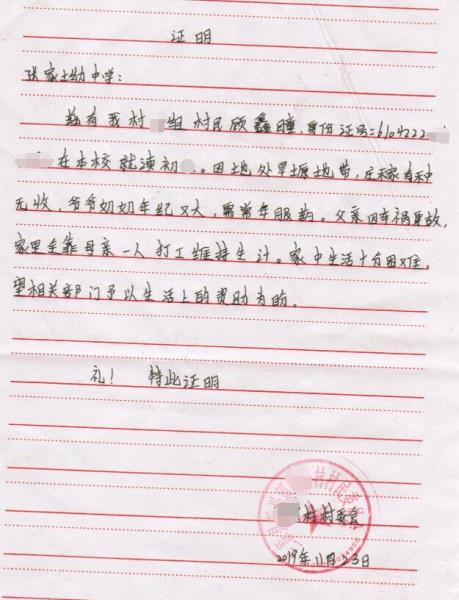 证明
张家土幼中学：
兹有我村 组 村民顾鑫瞳，身份证号：6104222
在本校就读初 。因地处旱塬地带，庄家有种
无收，爷爷奶奶年纪又大，需常年服药。父亲因车祸身故，
家里全靠母亲一人打工维持生计。家中生活十分困难，
望相关部门予以生活上的资助为盼。
礼！ 特此证明
村村委会
2019年11月23日